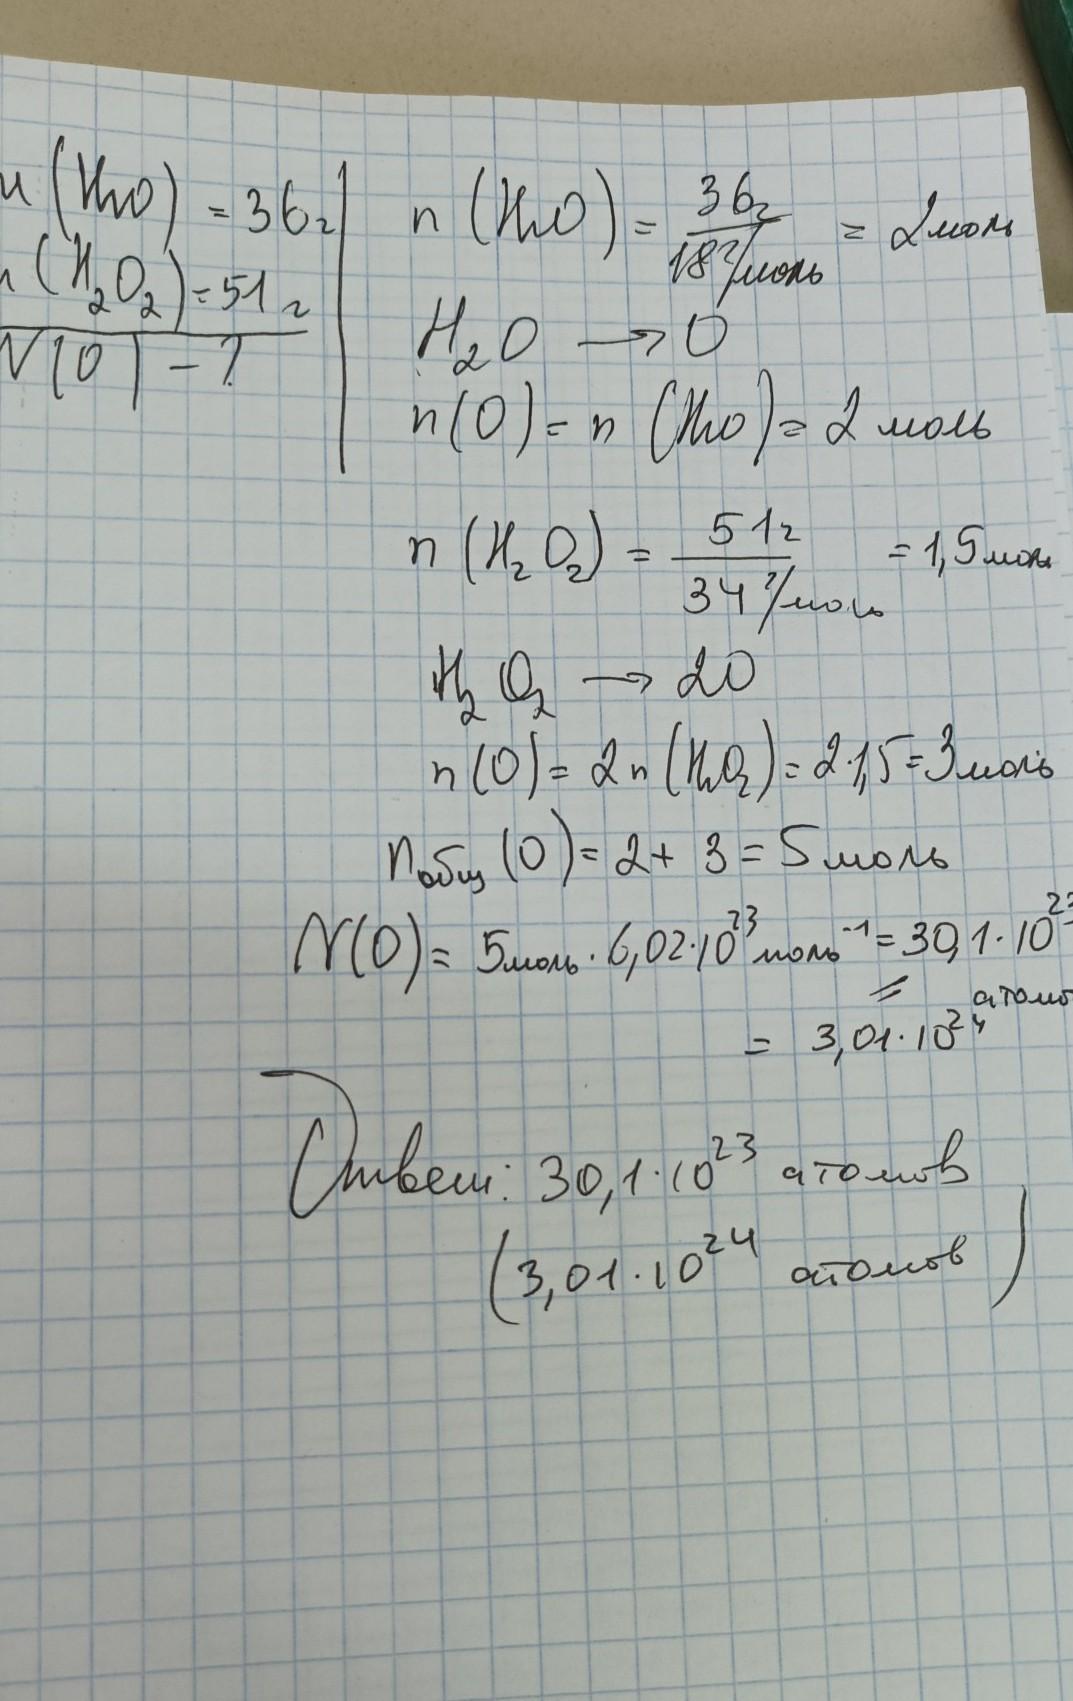 m (H₂O) = 36г
m (H₂O₂) = 51г
N(O) - ?
n (H₂O) = 36г / 18 г/моль = 2 моль
H₂O → O
n(O) = n (H₂O) = 2 моль
n (H₂O₂) = 51г / 34 г/моль = 1,5 моль
H₂O₂ → 2O
n(O) = 2n (H₂O₂) = 2·1,5 = 3 моль
nобщ (O) = 2 + 3 = 5 моль
N(O) = 5 моль · 6,02·10²³ моль⁻¹ = 30,1·10²³
атомо
= 3,01·10²⁴
Ответ: 30,1·10²³ атомов
(3,01·10²⁴ атомов)